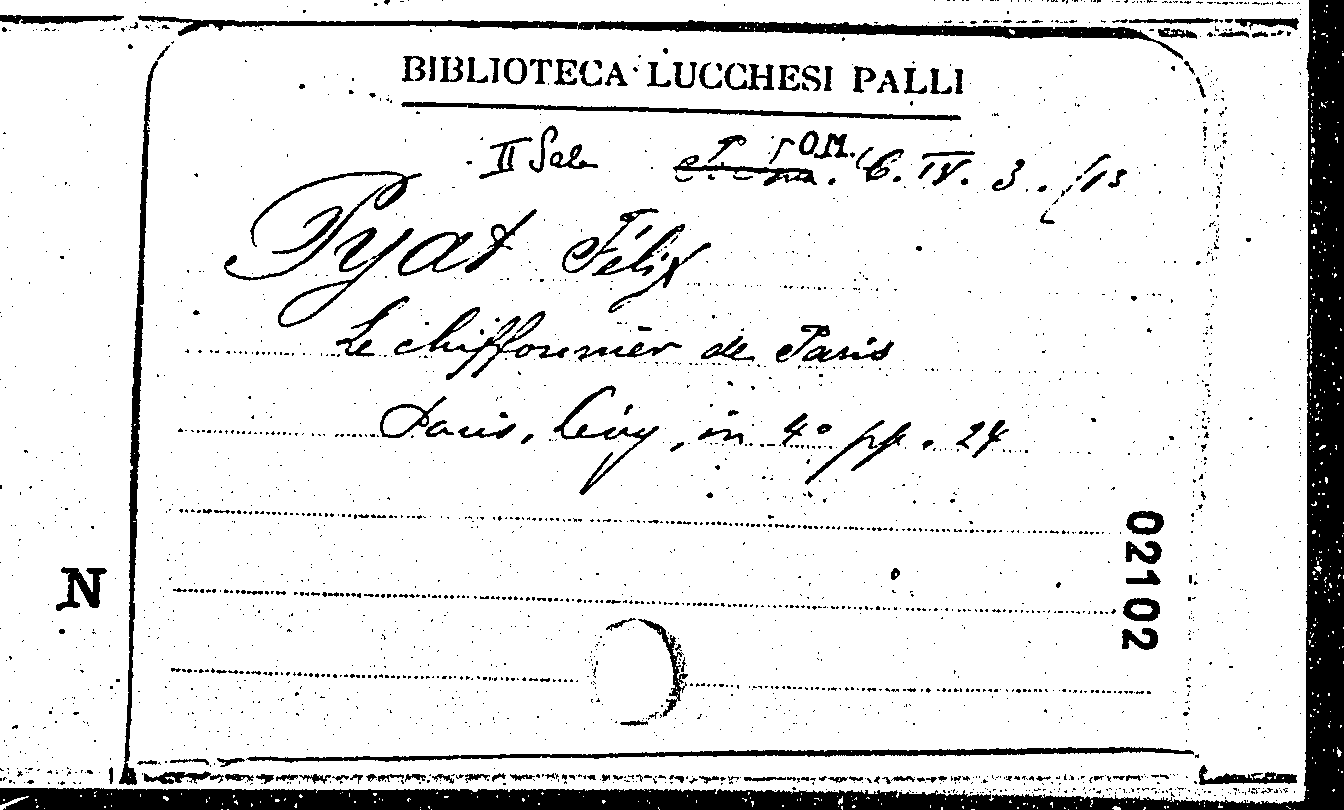 BIBLIOTECA LUCCHESI PALLI
II Sala R.O.M. C. IV. 3. /13
Pyat Félix
Le chiffonnier de Paris
Paris, Lévy, in 4° pp. 24
02102
N